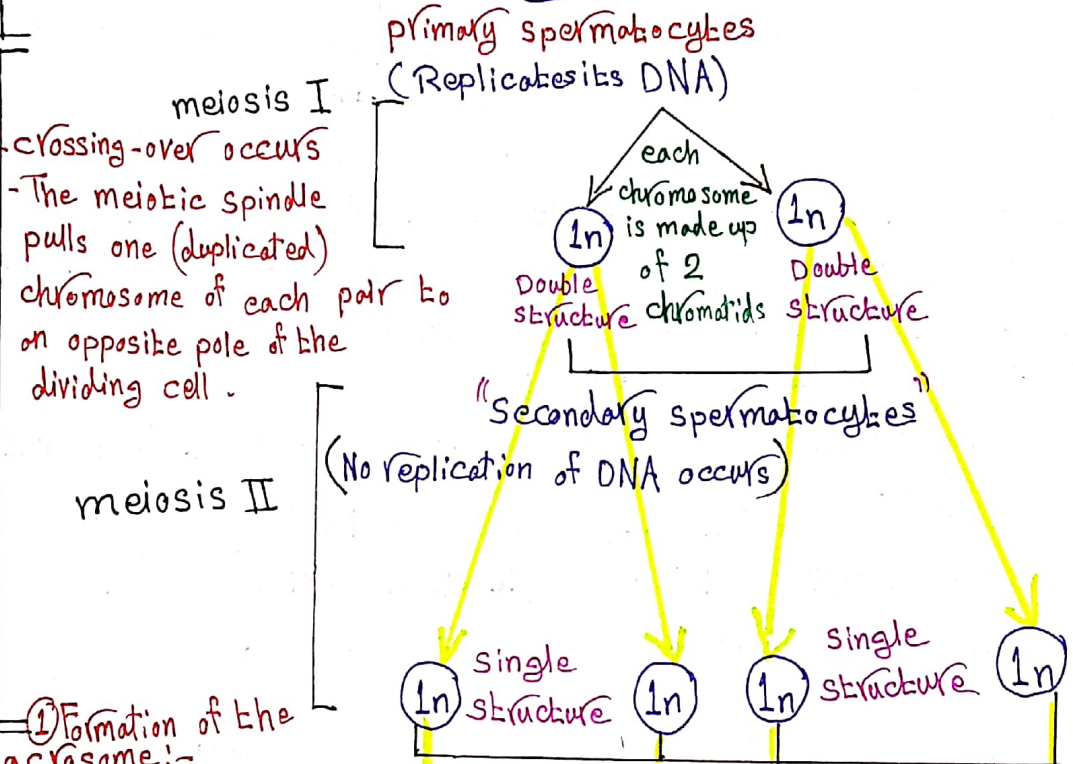 primary spermatocytes
(Replicates its DNA)
meiosis I
-crossing-over occurs
-The meiotic spindle
pulls one (duplicated)
chromosome of each pair to
an opposite pole of the
dividing cell.
each
chromosome
is made up
of 2
chromatids
1n
Double
structure
1n
Double
structure
"Secondary spermatocytes"
(No replication of DNA occurs)
meiosis II
1n
Single
structure
1n
1n
Single
structure
1n
① Formation of the
acrosome:-